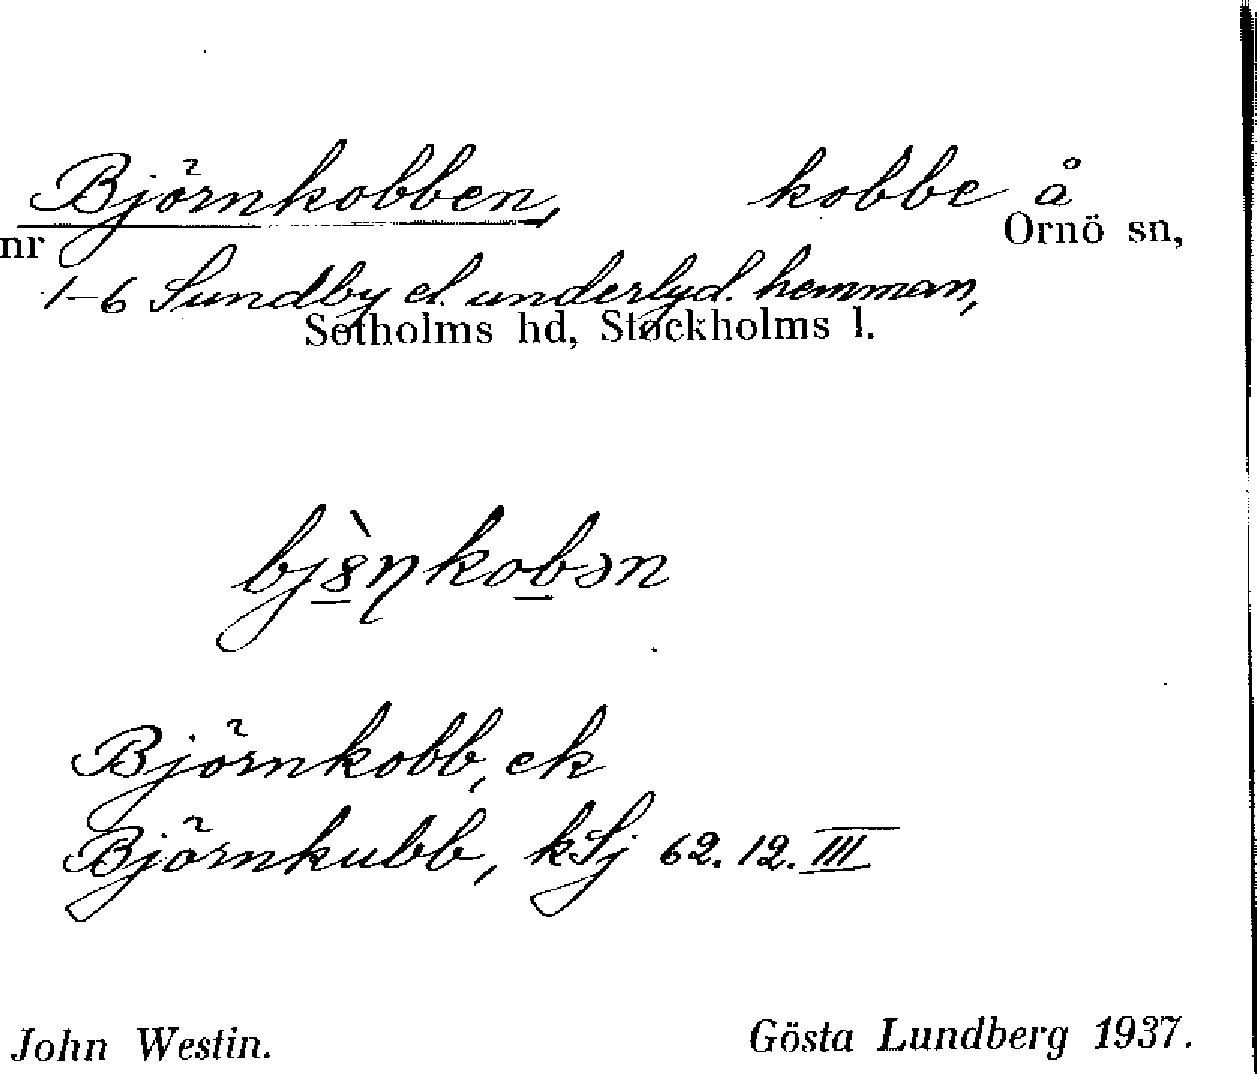 Björnkobben, kobbe å
nr Ornö sn,
1-6 Sundby el. underlyd. hemman,
Sotholms hd, Stockholms l.
Björnkobb, ek
Björnkubb, kSj 62.12.III
John Westin. Gösta Lundberg 1937.